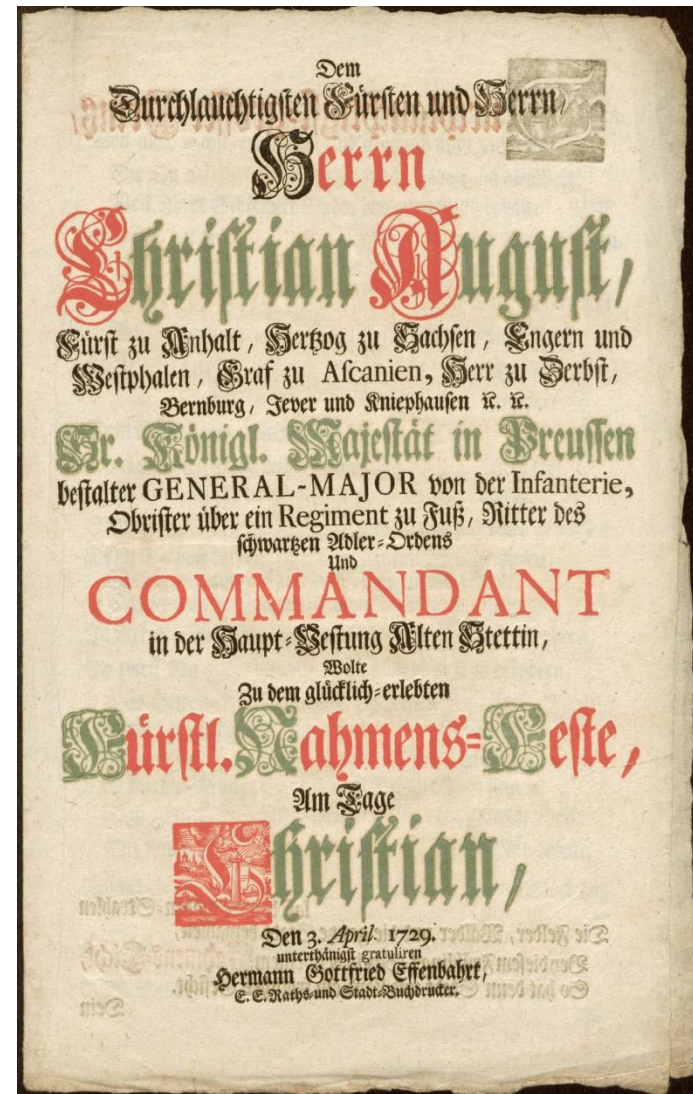 Dem
Durchlauchtigsten Fürsten und Herrn/
Herrn
Christian August,
Fürst zu Anhalt / Hertzog zu Sachsen, Engern und
Westphalen, Graf zu Ascanien, Herr zu Zerbst,
Bernburg, Jever und Kniephausen ꝛc. ꝛc.
Sr. Königl. Majestät in Preussen
bestalter GENERAL-MAJOR von der Infanterie,
Obrister über ein Regiment zu Fuß, Ritter des
schwartzen Adler-Ordens
Und
COMMANDANT
in der Haupt-Vestung Alten Stettin,
Wolte
Zu dem glücklich-erlebten
Fürstl. Nahmens-Feste,
Am Tage
Christian,
Den 3. April. 1729.
unterthänigst gratuliren
Hermann Gottfried Effenbahrt,
E. E. Raths-und Stadt-Buchdrucker.